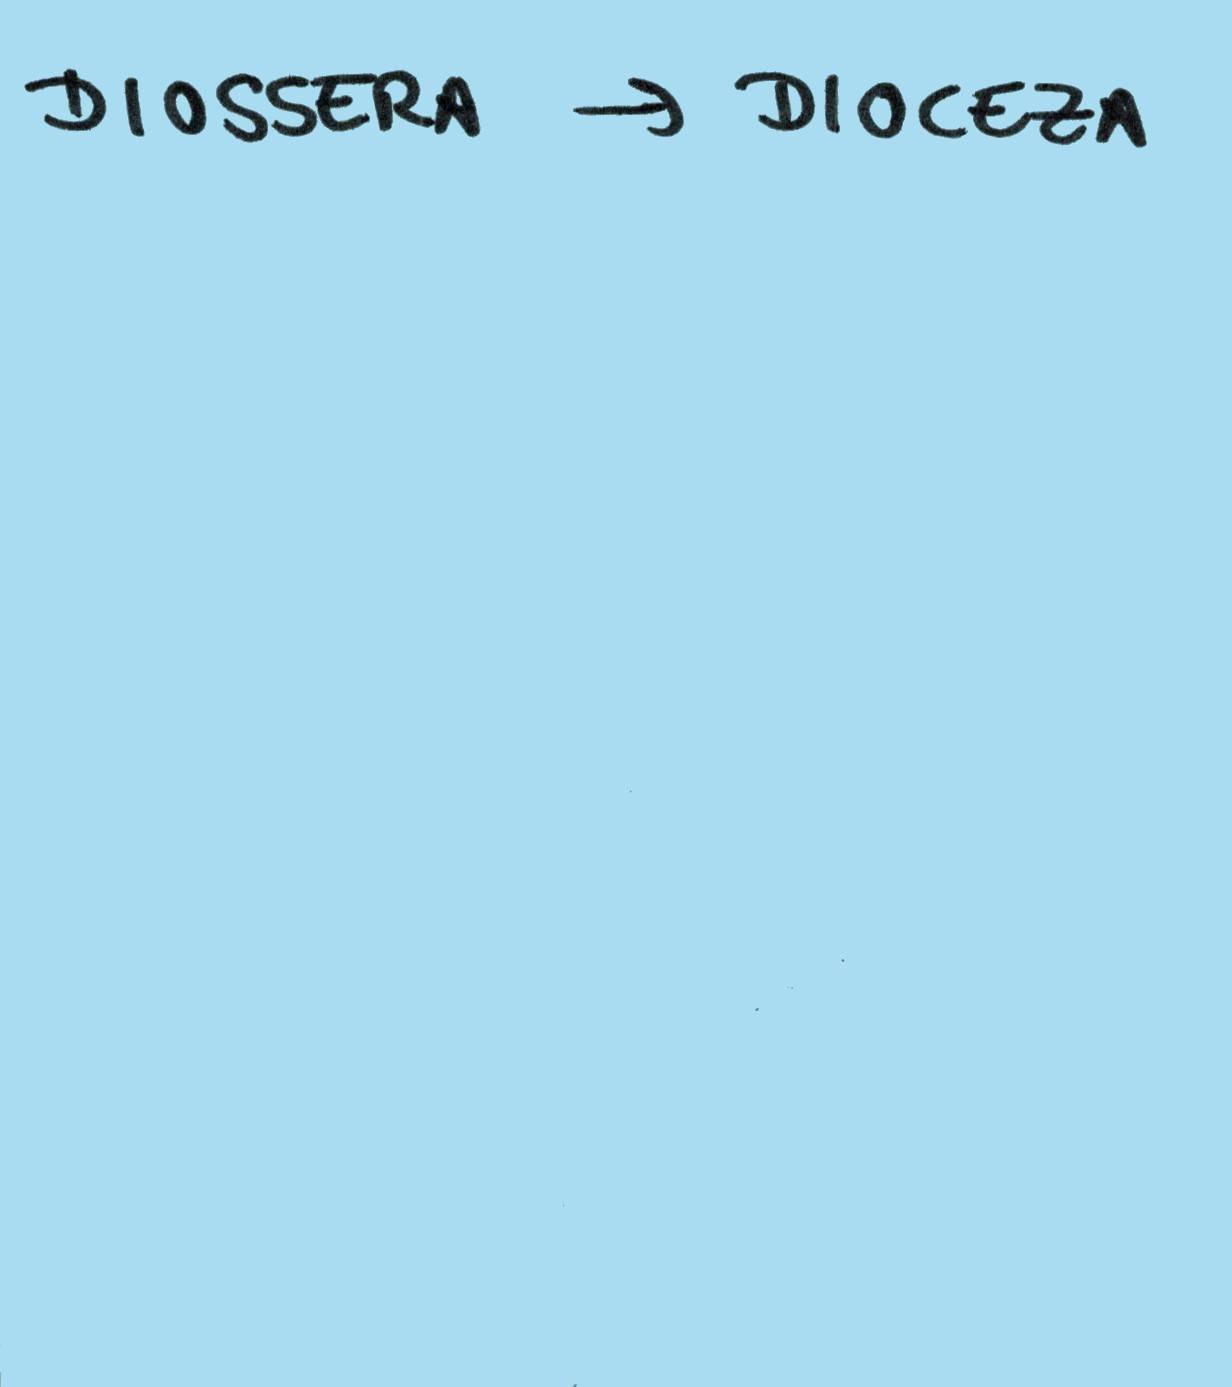 DIOSSERA → DIOCEZA